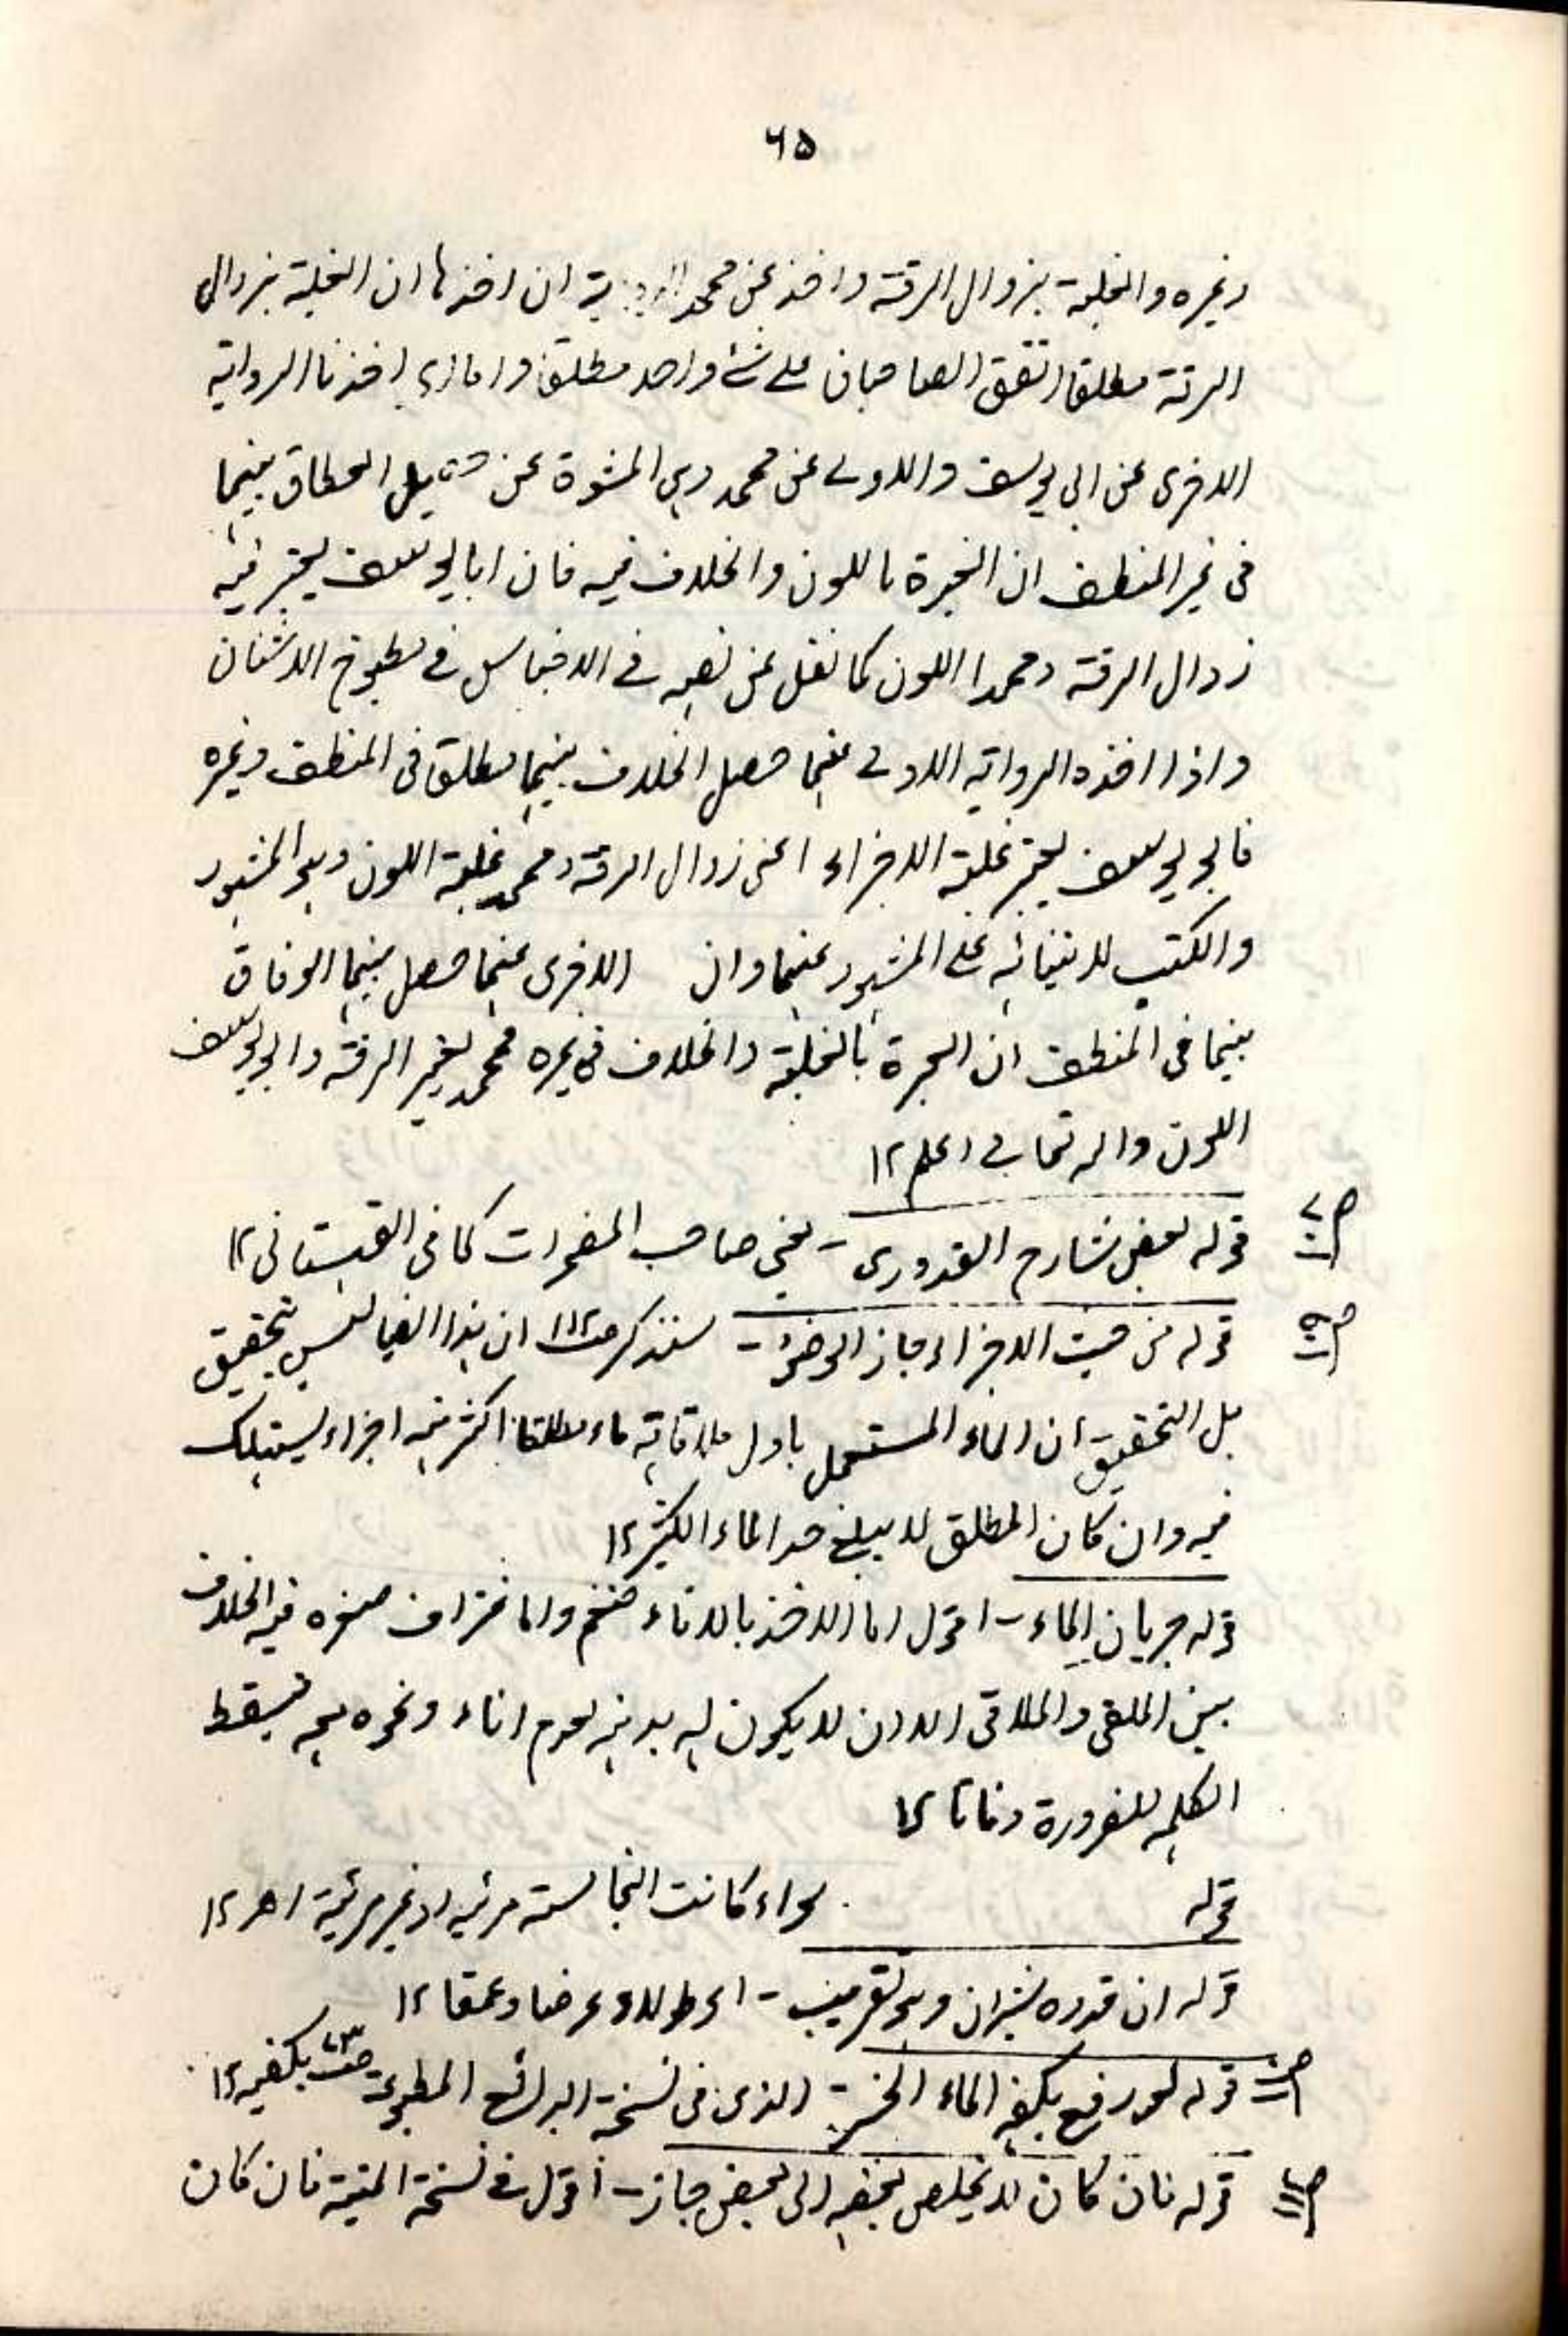 ۶۵
وغيره والغلبة بزوال الرقة واخذ عن محمد ان اخذ نا ان الغلبة بزوال
الرقة مطلقا اتفق الصاحبان على شئ واحد مطلقا واما اخذنا الرواية
الاخرى عن ابي يوسف والاولى عن محمد وهي المشهورة عن بينهما
في غير المنظف ان العبرة باللون والخلاف فيه فان ابا يوسف يعتبر فيه
زوال الرقة ومحمدا اللون كما نقل عن نصه في الاجناس في مطبوخ الاشنان
واذا اخذ الرواية الاولى عنهما حصل الخلاف بينهما مطلقا في المنظف وغيره
فابو يوسف يعتبر غلبة الاجزاء اعني زوال الرقة ومحمد غلبة اللون وهو المشهور
والكتب لابتنائه على المشهور عنهما وان الاخرى عنهما حصل بينهما الوفاق
بينهما في المنظف ان العبرة بالغلبة والخلاف في غيره محمد يعتبر الرقة وابو يوسف
اللون والله تعالى اعلم ١٢
قوله بعض شارح القدوري - يعني صاحب المضمرات كما في القهستاني ١٢
قوله من حيث الاجزاء جاز الوضوء - سنذكر ان هذا ايضا ليس بتحقيق
بل التحقيق ان الماء المستعمل باول ملاقاته ماء مطلقا اكثر منه اجزاء يستهلك
فيه وان كان المطلق لا يبلغ حد الماء الكثير ١٢
قوله جريان الماء - اقول اما الاخذ بالاناء فنعم واما الاغتراف فيه الخلاف
بين الملقى والملاقى الا ان لا يكون له بد منه لعدم اناء ونحوه معه فيسقط
الحكم للضرورة وفاقا ١٢
قوله سواء كانت النجاسة مرئية او غير مرئية اھ ١٢
قوله ان قدره بشبران وهو تقريب - اى طولا وعرضا وعمقا ١٢
قوله لو رفع بكفه الماء الخ - الذي في نسخة البدائع المطبوعة بكفيه ١٢
قوله فان كان لا يخلص بعضه الى بعض جاز - اقول في نسخة المنية فان كان